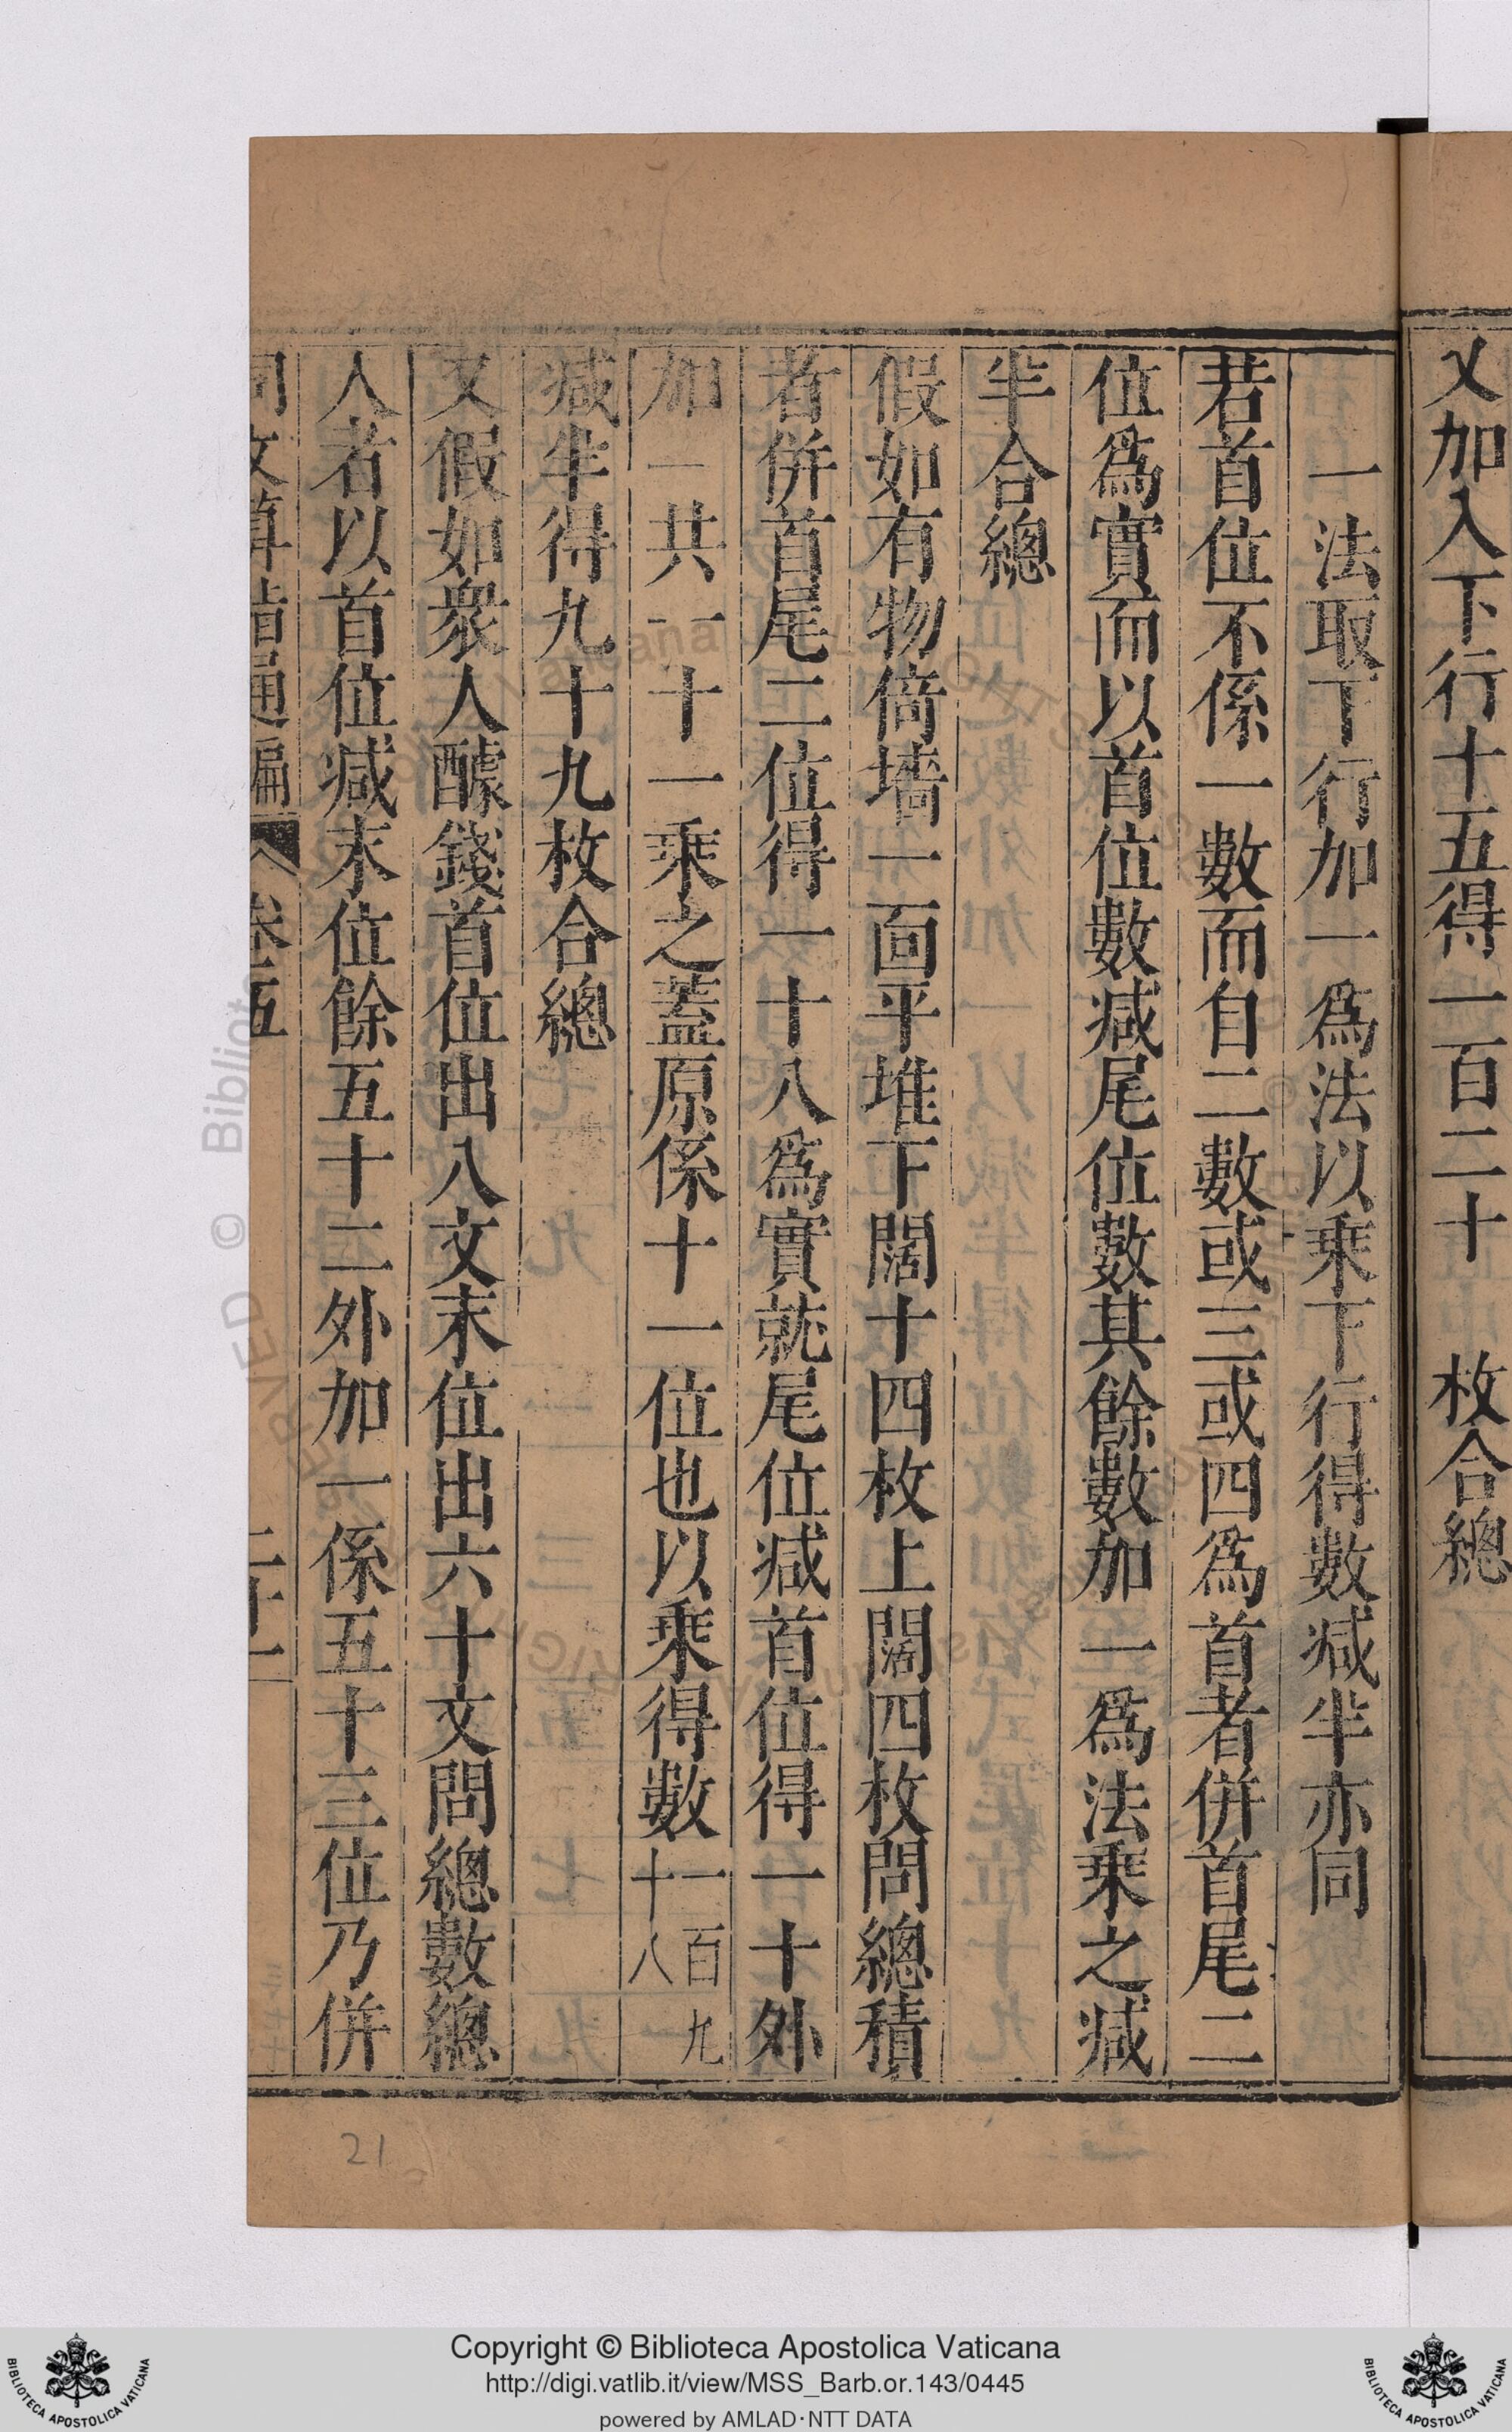 又加入下行十五得一百二十　枚合總
一法取下行加一爲法以乘下行得數減半亦同
若首位不係一數而自二數或三或四爲首者併首尾二
位爲實而以首位數減尾位數其餘數加一爲法乘之減
半合總
假如有物倚墻一面平堆下闊十四枚上闊四枚問總積
者併首尾二位得一十八爲實就尾位減首位得一十外
加一共一十一乘之蓋原係十一位也以乘得數一百九十八
減半得九十九枚合總
又假如衆人醵錢首位出八文末位出六十文問總數總
人者以首位減末位餘五十二外加一係五十三位乃併
同文算指通編　卷五　二十一
21
Copyright © Biblioteca Apostolica Vaticana
http://digi.vatlib.it/view/MSS_Barb.or.143/0445
powered by AMLAD·NTT DATA
BIBLIOTECA APOSTOLICA VATICANA
BIBLIOTECA APOSTOLICA VATICANA